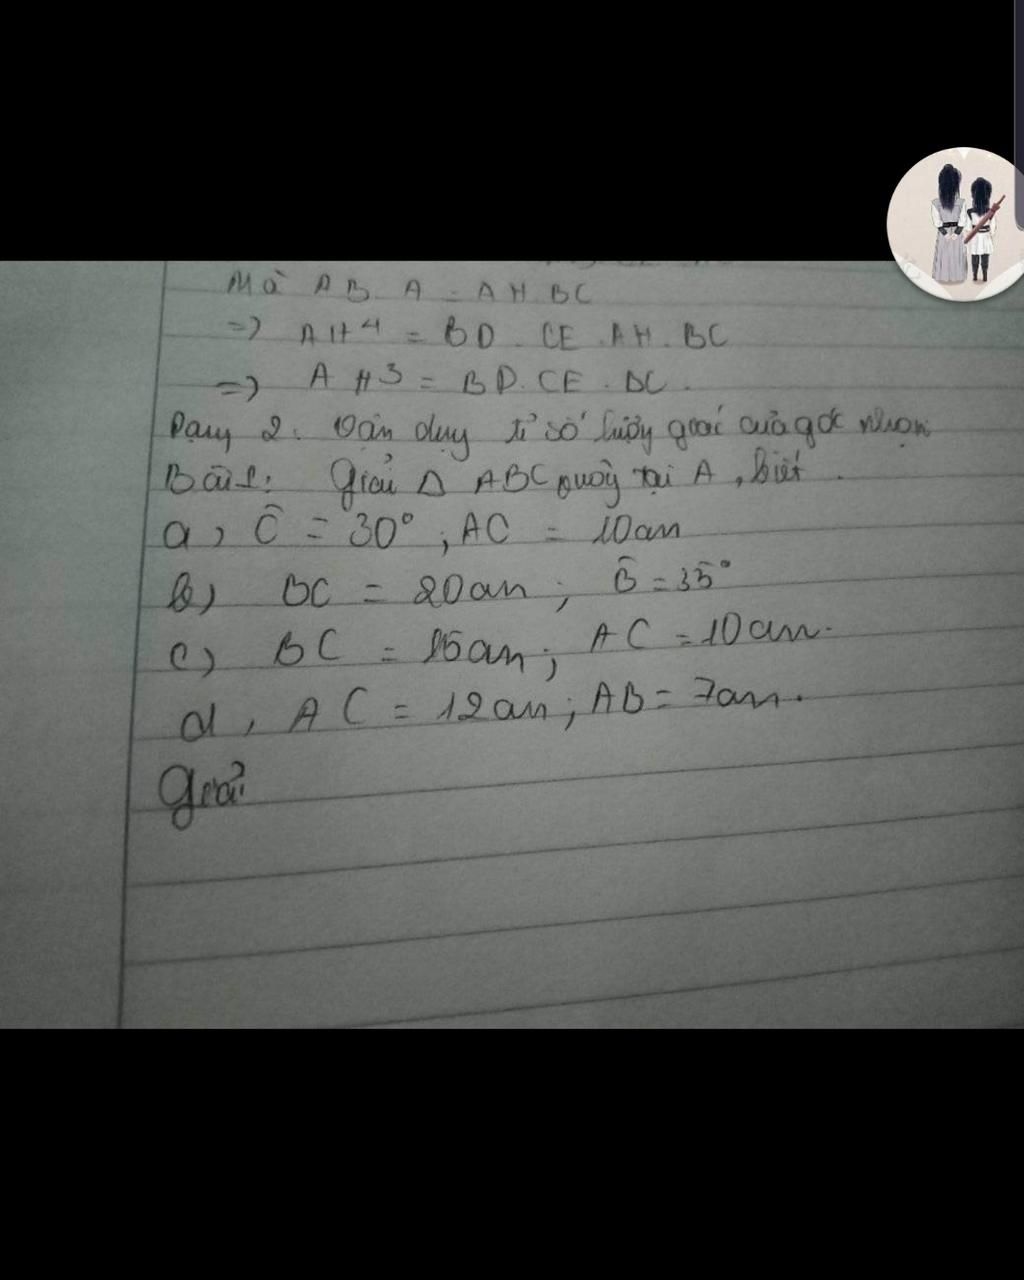 Mà AB. A = AH. BC
=> AH⁴ = BD . CE . AH . BC
=> AH³ = BD. CE . BC.
Dạng 2: Vận dụng tỉ số lượng giác của góc nhọn
Bài 1: Giải Δ ABC vuông tại A, biết.
a, Ĉ = 30°; AC = 10cm
b) BC = 20cm; B̂ = 35°
c) BC = 15cm; AC = 10cm.
d, AC = 12cm; AB = 7cm.
Giải